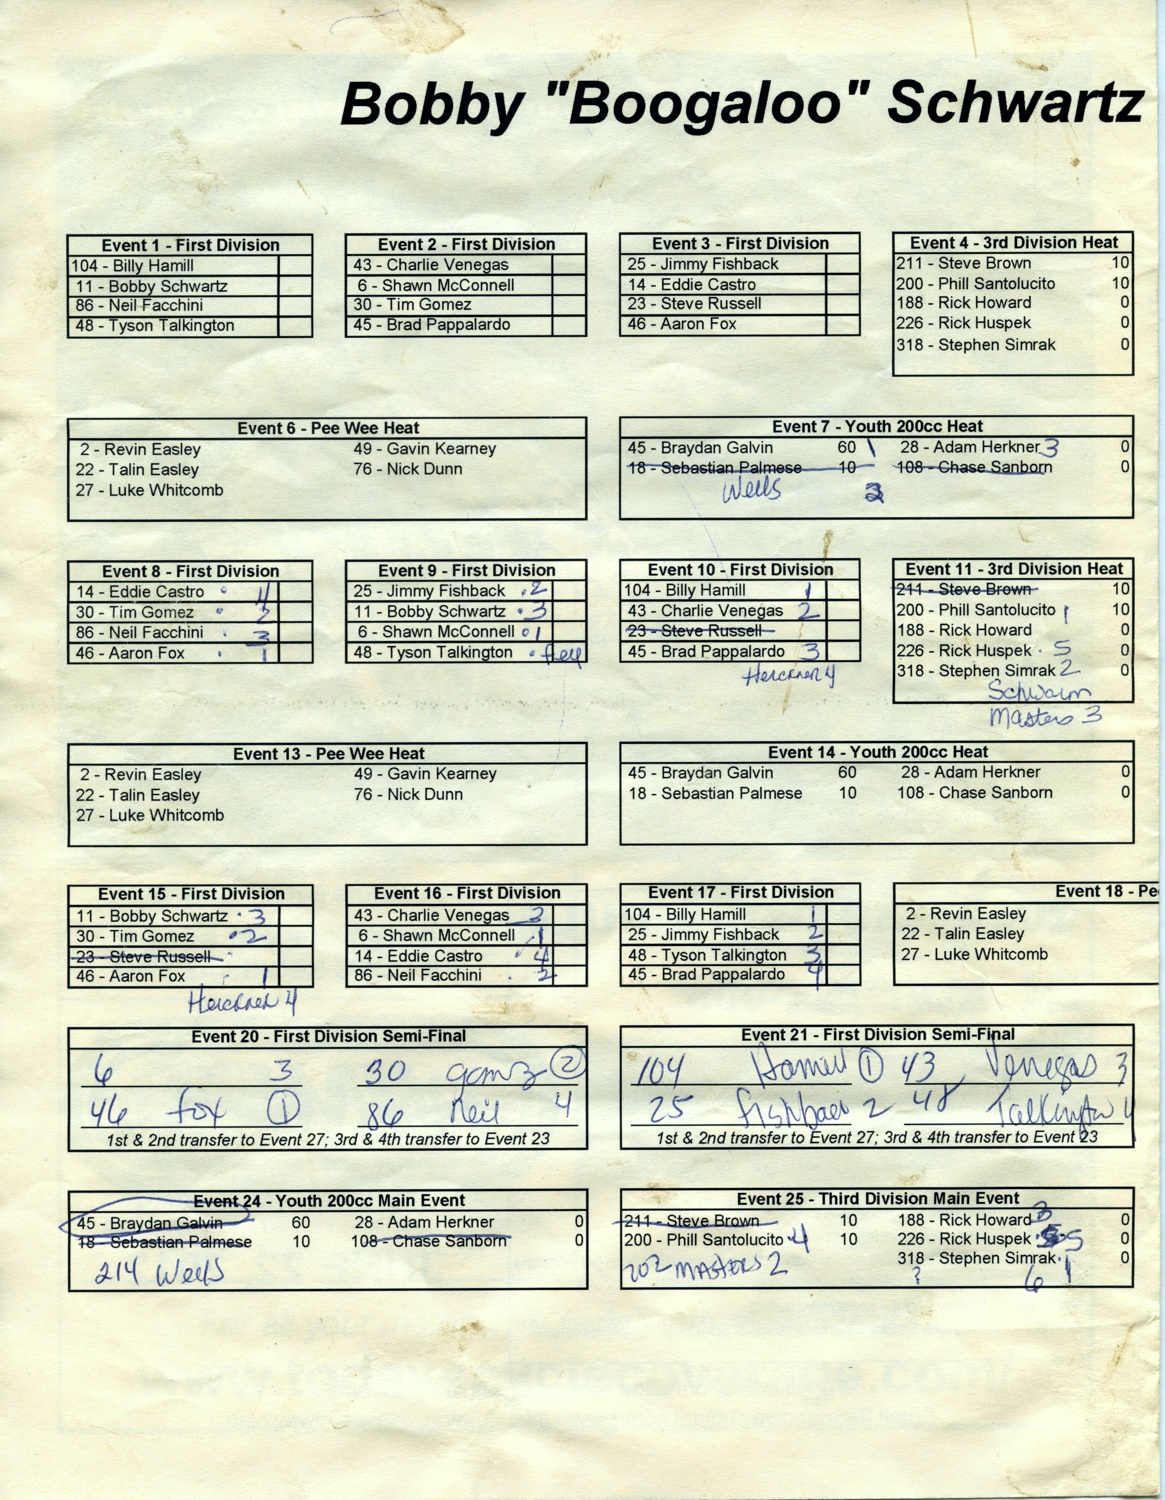 Bobby "Boogaloo" Schwartz
Event 1 - First Division
104 - Billy Hamill
11 - Bobby Schwartz
86 - Neil Facchini
48 - Tyson Talkington
Event 2 - First Division
43 - Charlie Venegas
6 - Shawn McConnell
30 - Tim Gomez
45 - Brad Pappalardo
Event 3 - First Division
25 - Jimmy Fishback
14 - Eddie Castro
23 - Steve Russell
46 - Aaron Fox
Event 4 - 3rd Division Heat
211 - Steve Brown 10
200 - Phill Santolucito 10
188 - Rick Howard 0
226 - Rick Huspek 0
318 - Stephen Simrak 0
Event 6 - Pee Wee Heat
2 - Revin Easley 49 - Gavin Kearney
22 - Talin Easley 76 - Nick Dunn
27 - Luke Whitcomb
Event 7 - Youth 200cc Heat
45 - Braydan Galvin 60 1 28 - Adam Herkner 3 0
18 - Sebastian Palmese 10 108 - Chase Sanborn 0
Wells 2
Event 8 - First Division
14 - Eddie Castro 4
30 - Tim Gomez 2
86 - Neil Facchini 3
46 - Aaron Fox 1
Event 9 - First Division
25 - Jimmy Fishback 2
11 - Bobby Schwartz 3
6 - Shawn McConnell 1
48 - Tyson Talkington fell
Event 10 - First Division
104 - Billy Hamill 1
43 - Charlie Venegas 2
23 - Steve Russell
45 - Brad Pappalardo 3
Herckner 4
Event 11 - 3rd Division Heat
211 - Steve Brown 10
200 - Phill Santolucito 1 10
188 - Rick Howard 0
226 - Rick Huspek 5 0
318 - Stephen Simrak 2 0
Schwarm
Masters 3
Event 13 - Pee Wee Heat
2 - Revin Easley 49 - Gavin Kearney
22 - Talin Easley 76 - Nick Dunn
27 - Luke Whitcomb
Event 14 - Youth 200cc Heat
45 - Braydan Galvin 60 28 - Adam Herkner 0
18 - Sebastian Palmese 10 108 - Chase Sanborn 0
Event 15 - First Division
11 - Bobby Schwartz 3
30 - Tim Gomez 2
23 - Steve Russell
46 - Aaron Fox 1
Herckner 4
Event 16 - First Division
43 - Charlie Venegas 3
6 - Shawn McConnell 1
14 - Eddie Castro 4
86 - Neil Facchini 2
Event 17 - First Division
104 - Billy Hamill 1
25 - Jimmy Fishback 2
48 - Tyson Talkington 3
45 - Brad Pappalardo 4
Event 18 - Pe
2 - Revin Easley
22 - Talin Easley
27 - Luke Whitcomb
Event 20 - First Division Semi-Final
6 3 30 gomz 2
46 fox 1 86 Neil 4
1st & 2nd transfer to Event 27; 3rd & 4th transfer to Event 23
Event 21 - First Division Semi-Final
104 Hamill 1 43 Venegas 3
25 fishbac 2 48 Talkington 4
1st & 2nd transfer to Event 27; 3rd & 4th transfer to Event 23
Event 24 - Youth 200cc Main Event
45 - Braydan Galvin 60 28 - Adam Herkner 0
18 - Sebastian Palmese 10 108 - Chase Sanborn 0
214 Wells
Event 25 - Third Division Main Event
211 - Steve Brown 10 188 - Rick Howard 3 0
200 - Phill Santolucito 4 10 226 - Rick Huspek 5 0
318 - Stephen Simrak 1 0
202 MASTERS 2 ? 6